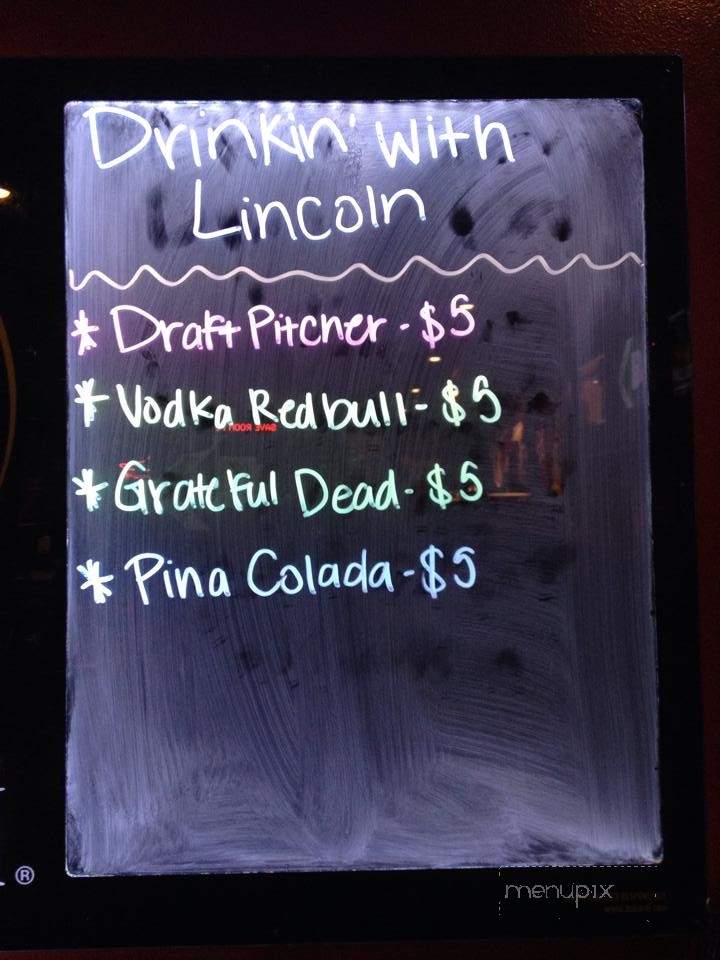 Drinkin' with
Lincoln
* Draft Pitcher - $5
* Vodka Redbull - $5
* Grateful Dead - $5
* Pina Colada - $5
®
menupix